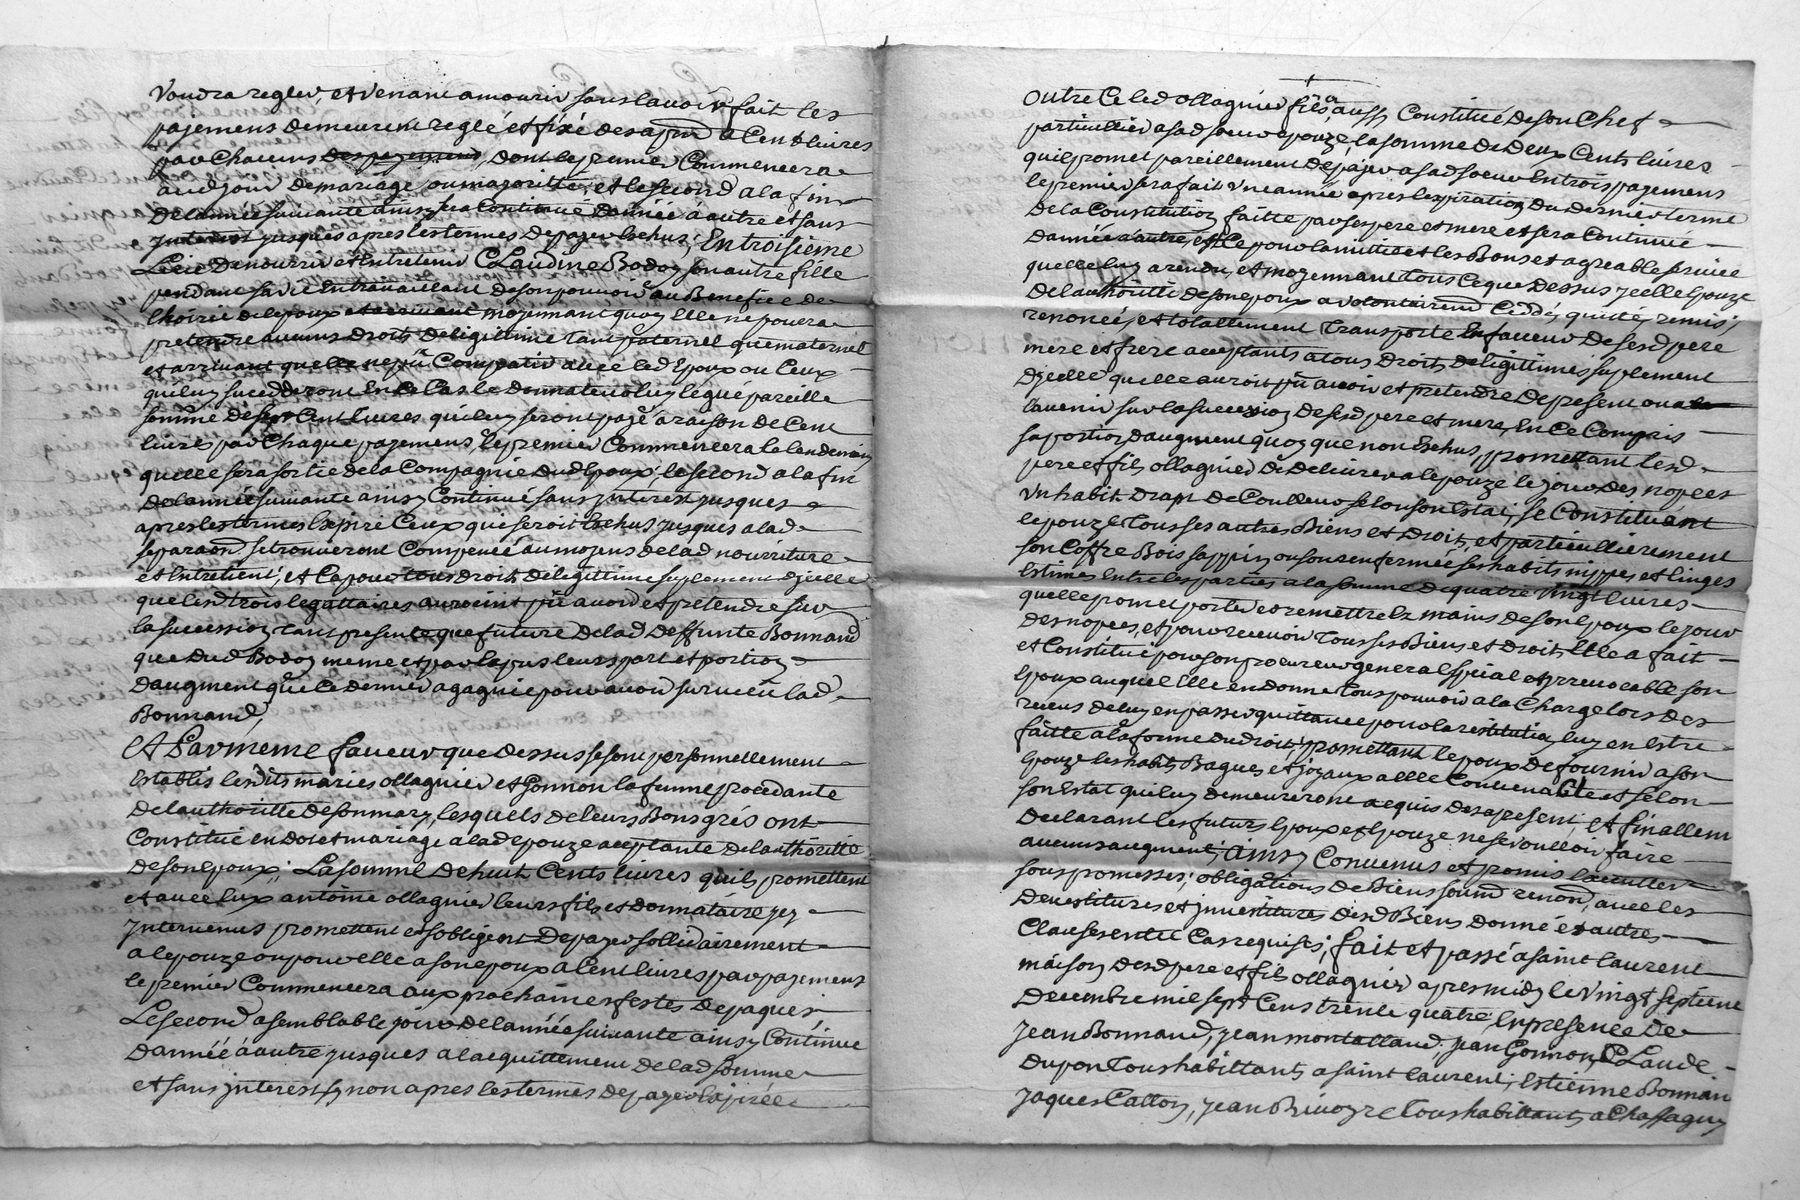 voudra regler, et venant a mourir sans l'avoir fait les
payemens demeurent reglé et fixé des apnt a Cent livres
par Chacuns des payemens, dont le premier Commencera
aud jour de mariage, ou majoritté, et le second a la fin
de lannée suivante ainsy sera Continué dannée a autre et sans
jnterest jusques apres les termes de payer Echus; En troisieme
Lieu de nourrir et Entretenir CLaudine Bodoy son autre fille
pendant sa vie En travaillant de son pouvoir au Benefice de
lhoirie de lepoux moyennant quoy Elle ne pouera
pretendre aucuns droits de legittime tant paternel que maternel
et arrivant quelle ne put Compatir avec led Epoux ou Ceux
qui luy succederont En Ce Cas le donnateur luy legue pareille
somme de sept Cent livres qui luy seront payé a raison de Cent
livres par Chaque payemens, le premier Commencera le lendemain
quelle sera sortie de la Compagnie dud Epoux, le second a la fin
de lannée suivante ainsy Continué sans jnterest jusques
apres les termes Expiré Ceux qui seroit Echus jusques a lad
separaon se trouveront Compencé au moyens de lad nourriture
et Entretient, et Ce pour tous droits de legittime suplement djcelle
que lesd trois legattaires auroient pû avoir et pretendre sur
la succession tant presente que future de lad deffunte Bonnand
que dud Bodoy meme et par Exprés leurs part et portion
daugment que Ce dernier a gagnié pour avoir survecu lad
Bonnand,
Et Par meme faveur que dessus se sont personnellement
Establis lesdits mariés ollagnier et Gonnon la femme procedante
de lauthoritté de son mary, lesquels de leurs Bons grés ont
Constitué en dot et mariage a lad epouze aceptante de lauthoritté
de son epoux; La somme de huit Cents livres quils promettent
et avec Eux antoine ollagnier leurs fils et donnataire jcy
jntervenus promettent et sobligent de payer sollidairement
a lepouze ou pour elle a son epoux a Cent livres par payemens
le premier Commencera aux prochaines festes de paques
Le second a semblable jour de lannée suivante ainsy Continué
dannée a autre jusques a lacquittement de lad somme
et sans jnterest sy non apres les termes de payer Expirée
outre Ce led ollagnier fils a aussy Constitué de son Chef
particullier a sad soeur epouze, la somme de deux Cents livres
quil promet pareillement de payer a sad soeur En trois payemens
le premier sera fait une année apres lexpiration du dernier terme
de la Constitution faitte par ses pere et mere et sera Continué
dannée a autre, et Ce pour lamittié et les Bons et agreable service
quelle luy a rendu, et moyennant tous Ce que dessus jcelle Epouze
de lauthoritté de son epoux a volontairemt Ceddé, quitté, remis,
renoncé, et totallement transporté En faveur de sesd pere
mere et frere aceptants a tous droits de legittimes suplement
djcelle quelle auroit pû avoir et pretendre de present ou a
lavenir sur la succession de sesd pere et mere, En Ce Compris
sa portion daugment quoy que non Echus, promettant lesd
pere et fils ollagnier de delivrer a lepouze le jour des nopces
un habit drapt de Coulleur selon son Estat, se Constituant
lepouze tous ses autres Biens et droits, et particullierement
son Coffre Bois sappin ou sont renfermée ses habits nippes et linges
Estimés Entre les parties a la somme de quatre vingt livres
quelle promet porter et remettre Ez mains de son Epoux le jour
des nopces, et pour recevoir tous ses Biens et droits Elle a fait
et Constitué pour son procureur general special et jrrevocable son
Epoux auquel Elle en donne tous pouvoir a la Charge lors des
receus de luy en passer quittance pour la restitution luy en Estre
faitte a la forme du droit; promettant lepoux de fournir a son
Epouze les habits Bagues et joyaux a Elle Convenable et selon
son Estat qui luy demeureront acquis des apresent, Et finallemt
declarant les futurs Epoux et Epouze ne se voulloir faire
aucuns augment; Ainsy Convenus et promis lacculler
sous promesses, obligations de Biens soumd renond, avec les
devestitures et jnvestitures desd Biens donné et autres
Clauses en tel Cas requises; fait et passé a saint laurent
maison desd pere et fils ollagnier apres midy le vingt septieme
decembre mil sept Cens trente quatre En presence de
Jean Bonnand, jean montalland, jean Gonnon, CLaude
dupon tous habittants a saint laurent, Estienne Bonnan
jaques Catton, jean Rivoyre tous habittants a Chassagny